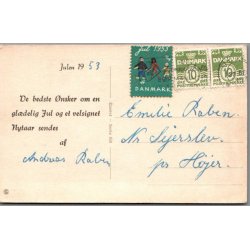 Julen 1953
De bedste Ønsker om en
glædelig Jul og et velsignet
Nytaar sendes
af
Andreas Raben
Jul 1953
DANMARK
DANMARK
10
DANMARK
10
Emilie Raben
Nr. Sejerslev
pr. Højer.